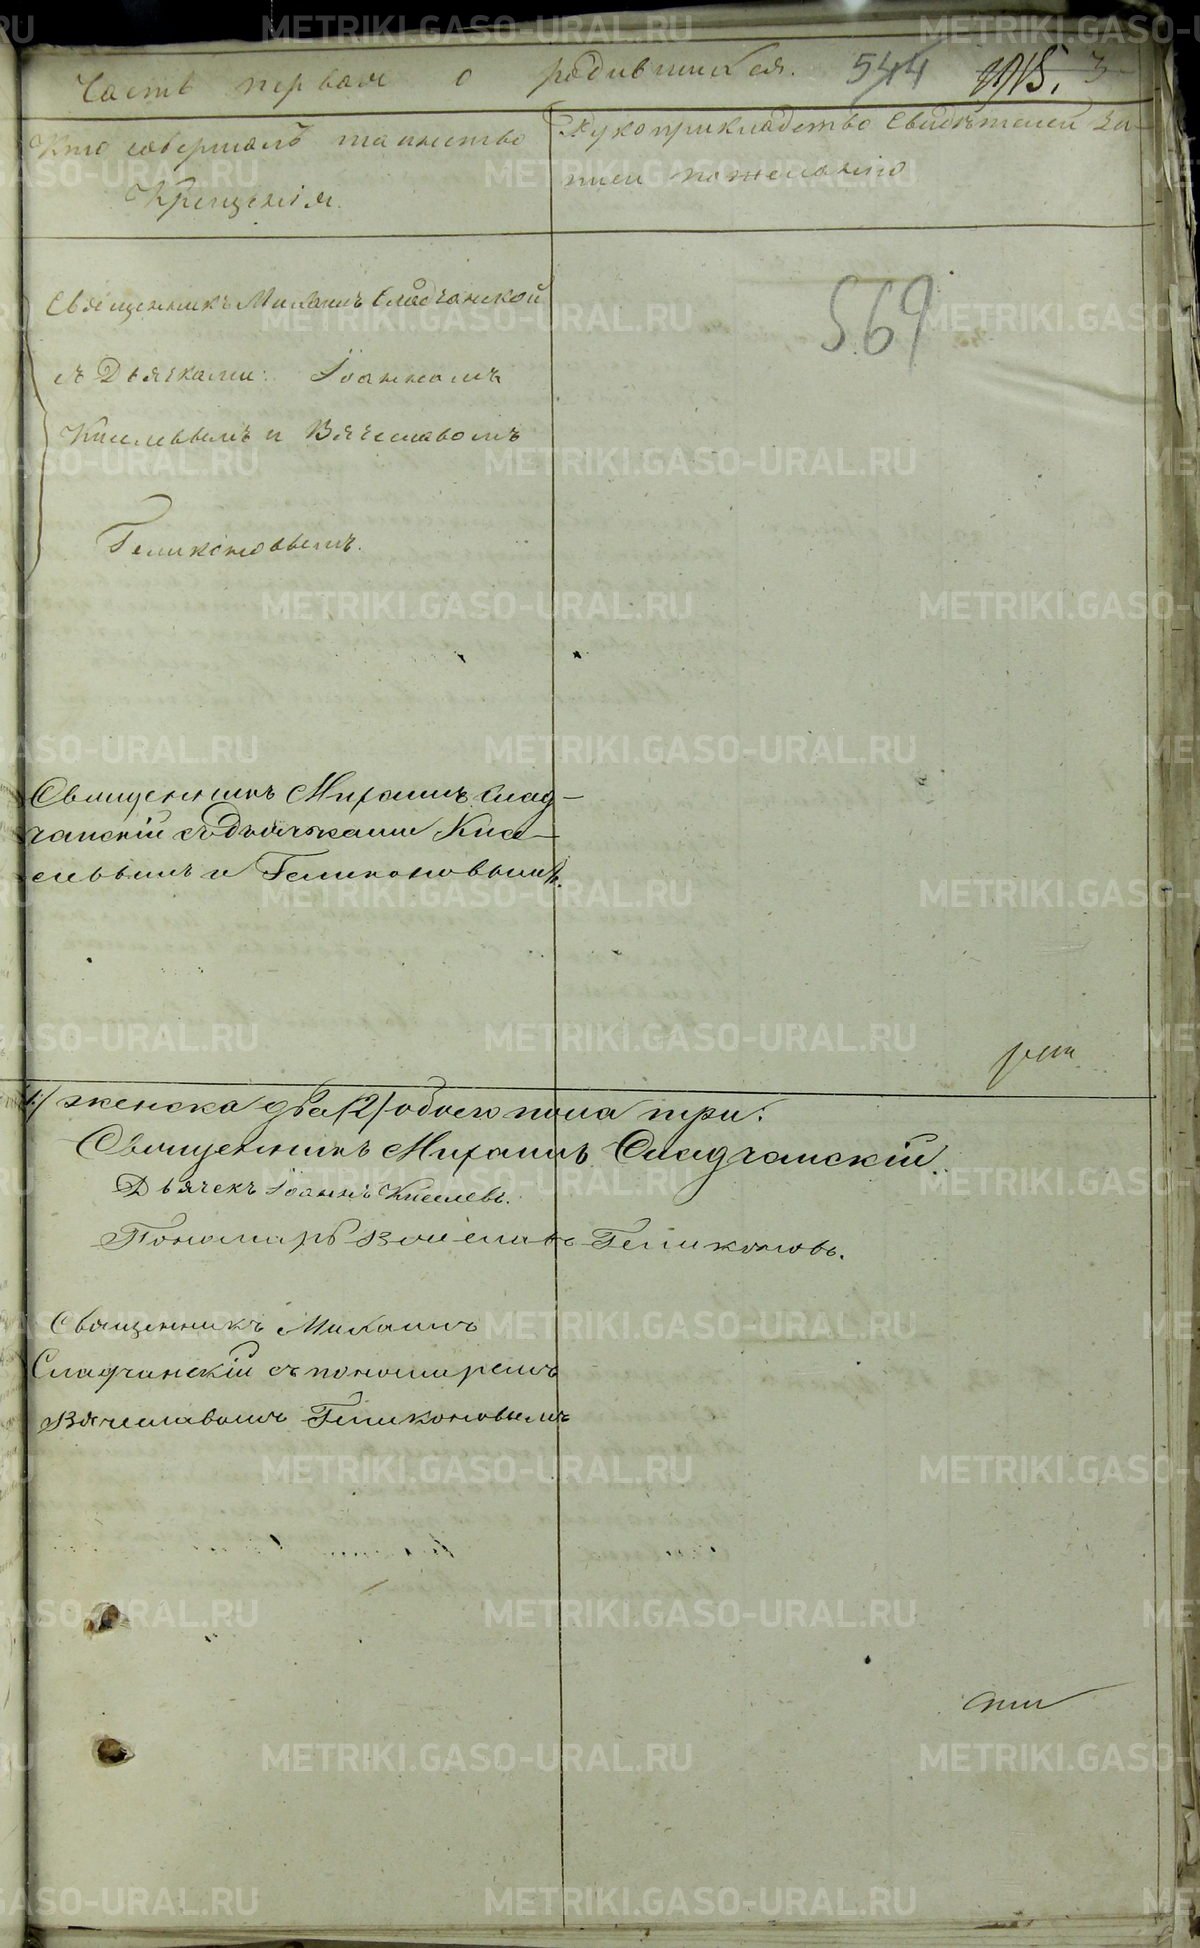 Часть первая о родившихся. 544 3
Кто совершалъ таинство
Крещенія.
Рукоприкладство свидѣтелей за-
писи по желанію
569
Священникъ Михаилъ Сладчанской
съ Дьячками: Іоанномъ
Киселевымъ и Вячеславомъ
Геликоновымъ.
Священникъ Михаилъ Слад-
чанскій съ дьячками Кисе-
левымъ и Геликоновымъ.
женска два (2) обоего пола три:
Священникъ Михаилъ Сладчанскій.
Дьячекъ Іоаннъ Киселевъ.
Пономарь Вячеславъ Геликоновъ.
Священникъ Михаилъ
Сладчанскій съ пономаремъ
Вячеславомъ Геликоновымъ
METRIKI.GASO-URAL.RU